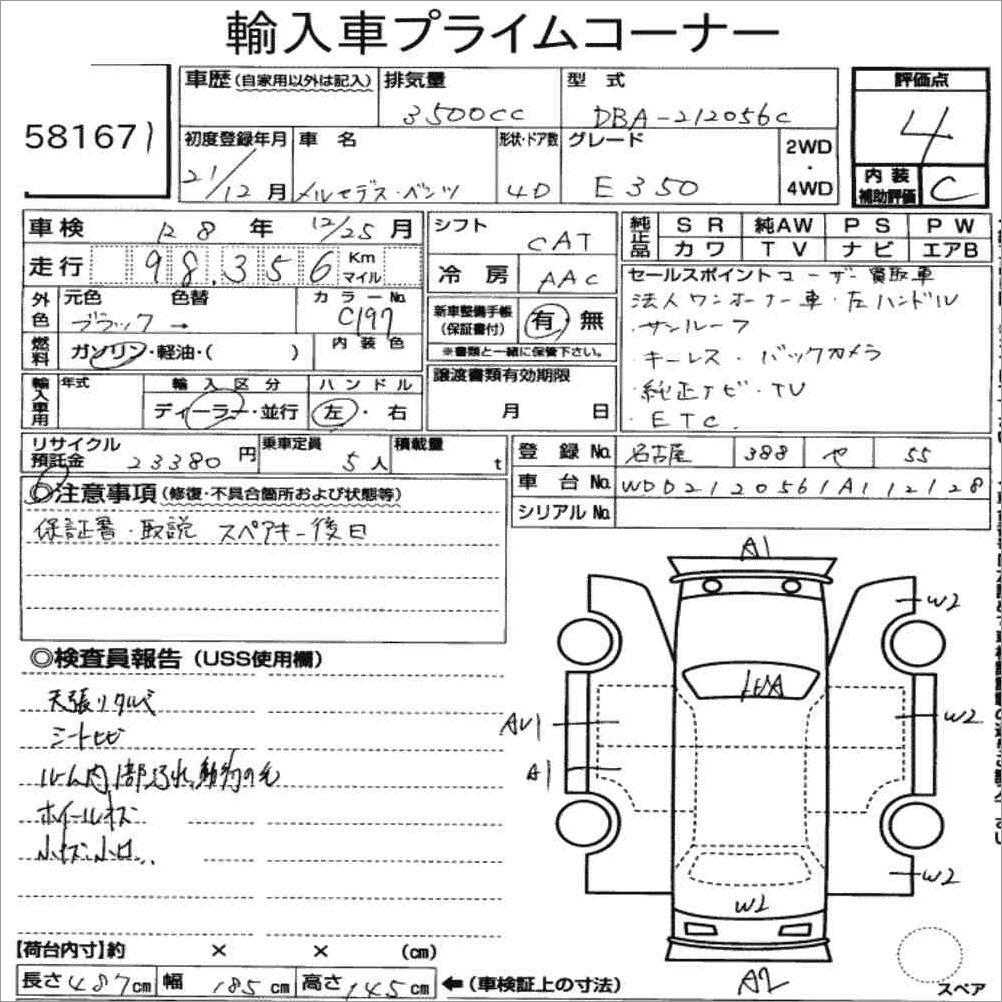 輸入車プライムコーナー
58167 1
車歴(自家用以外は記入) 排気量 3500cc 型式 DBA-212056C 評価点 4
初度登録年月 21/12月 車名 メルセデス・ベンツ 形状・ドア数 4D グレード E350 2WD・4WD 内装補助評価 C
車検 R8年 12/25月 シフト CAT 純正品 SR 純AW PS PW
カワ TV ナビ エアB
走行 98,356 Km マイル 冷房 AAC
外色 元色 ブラック 色替 → カラーNo. C197
燃料 ガソリン・軽油・( ) 内装色
新車整備手帳(保証書付) 有・無
※書類と一緒に保管下さい。
セールスポイント ユーザー買取車
法人ワンオーナー車・左ハンドル
・サンルーフ
・キーレス・バックカメラ
・純正ナビ・TV
・ETC.
輸入車用 年式 輸入区分 ディーラー・並行 ハンドル 左・右
譲渡書類有効期限 月 日
リサイクル預託金 23380円 乗車定員 5人 積載量 t
登録No. 名古屋 388 や 55
車台No. WDD2120561A112128
シリアルNo.
◎注意事項(修復・不具合箇所および状態等)
保証書・取説 スペアキー後日
◎検査員報告(USS使用欄)
天張リタルミ
シートヒビ
ルーム内1部汚れ、動物の毛
ホイールキズ
小キズ小凹、、
A1
W2
AU1
W2
A1
W2
W2
A2
スペア
【荷台内寸】約 × × (cm)
長さ487cm 幅185cm 高さ145cm ←(車検証上の寸法)